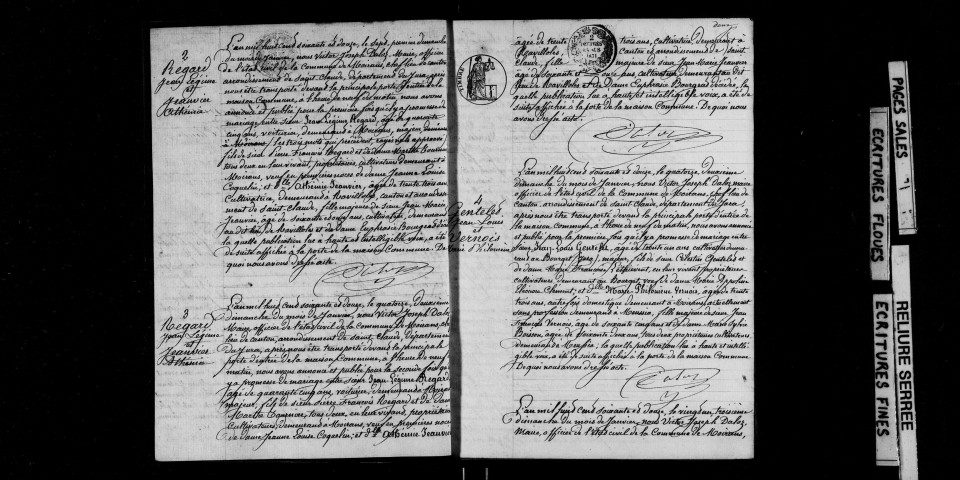 2
Regard
Jean Légime
et
Jeanvier
Athénia
L'an mil huit cent soixante et douze, le sept, premier dimanche
du mois de Janvier, nous Victor Joseph Daloz, Maire, officier
de l'état civil de la Commune de Moirans, chef lieu de canton
arrondissement de Saint-Claude, département du Jura, après
nous être transporté devant la principale porte d'entrée de la
maison Commune, à l'heure de neuf du matin, nous avons
annoncé et publié pour la première fois qu'il y a promesse de
mariage entre sieur Jean Légime Regard, âgé de quarante
cinq ans, voiturier, demeurant à Moirans, majeur,
fils de sieur Pierre François Regard et de dame Marthe
tous deux en leur vivant, propriétaires, cultivateurs demeurant à
Moirans, veuf en premières noces de dame Jeanne Louise
Coquelin; et Dlle Athénie Jeanvier, âgée de trente trois ans
Cultivatrice, demeurant à Ravilloles, canton et arrondisse
ment de Saint-Claude, fille majeure de sieur Jean Marie
Jeanvier, âgé de soixante et douze ans, cultivateur, demeurant
au dit lieu de Ravilloles et de dame Euphrosie Bourgeat
la quelle publication lue à haute et intelligible voix, a été
de suite affichée à la porte de la maison Commune. De
quoi nous avons dressé acte.
Daloz
3
Regard
Jean Légime
et
Jeanvier
Athénia
L'an mil huit cent soixante et douze, le quatorze, deuxième
dimanche du mois de Janvier, nous Victor Joseph Daloz
Maire, officier de l'état civil de la Commune de Moirans, chef
lieu de canton, arrondissement de Saint-Claude, département
du Jura, après nous être transporté devant la principale
porte d'entrée de la maison Commune, à l'heure de neuf
matin, nous avons annoncé et publié pour la seconde fois qu'il
y a promesse de mariage entre sieur Jean Légime Regard
âgé de quarante cinq ans, voiturier, demeurant à Moirans
majeur, fils de sieur Pierre François Regard et de Dame
Marthe tous deux, en leur vivant, propriétaires
Cultivateurs, demeurant à Moirans, veuf en premières noces
de dame Jeanne Louise Coquelin; et Dlle Athénie Jeanvier
douze
âgée de trente trois ans, cultivatrice, demeurant à
Ravilloles canton et arrondissement de Saint
Claude, fille majeure de sieur Jean Marie Jeanvier
âgé de soixante et douze ans cultivateur demeurant au dit
lieu de Ravilloles et de Dame Euphrosie Bourgeat
la quelle publication lue à haute et intelligible voix, a été de
suite affichée à la porte de la maison Commune. De quoi nous
avons dressé acte.
Daloz
4
Gentelet
Jean Louis
et
Vernois
Marie Philomène
L'an mil huit cent soixante et douze, le quatorze, deuxième
dimanche du mois de Janvier, nous Victor Joseph Daloz maire
officier de l'état civil de la Commune de Moirans, chef lieu de
canton, arrondissement de Saint-Claude, département du Jura,
après nous être transporté devant la principale porte d'entrée de
la maison commune, à l'heure de neuf du matin, nous avons annoncé
et publié pour la première fois qu'il y a promesse de mariage entre
sieur Jean Louis Gentelet, âgé de trente un ans cultivateur demeu
rant au Bourget (Jura) majeur, fils de sieur Célestin Gentelet et
de dame
cultivateurs demeurant au Bourget, veuf de dame Marie
et Dlle Marie Philomène Vernois, âgée de trente
trois ans, autrefois domestique demeurant à Moirans actuellement
sans profession demeurant à fille majeure de sieur Jean
François Vernois, âgé de soixante cinq ans et de dame Marie
âgée de ans tous deux propriétaires cultivateurs
demeurant la quelle publication lue à haute et intelli
gible voix, a été de suite affichée à la porte de la maison Commune.
De quoi nous avons dressé acte.
Daloz
L'an mil huit cent soixante et douze, le vingt un, troisième
dimanche du mois de Janvier, nous Victor Joseph Daloz,
Maire, officier de l'état civil de la Commune de Moirans,
PAGES SALES
ECRITURES FLOUES
RELIURE SERREE
ECRITURES FINES